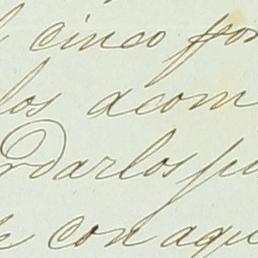 cinco por
los acom
darlos pu
con aqu